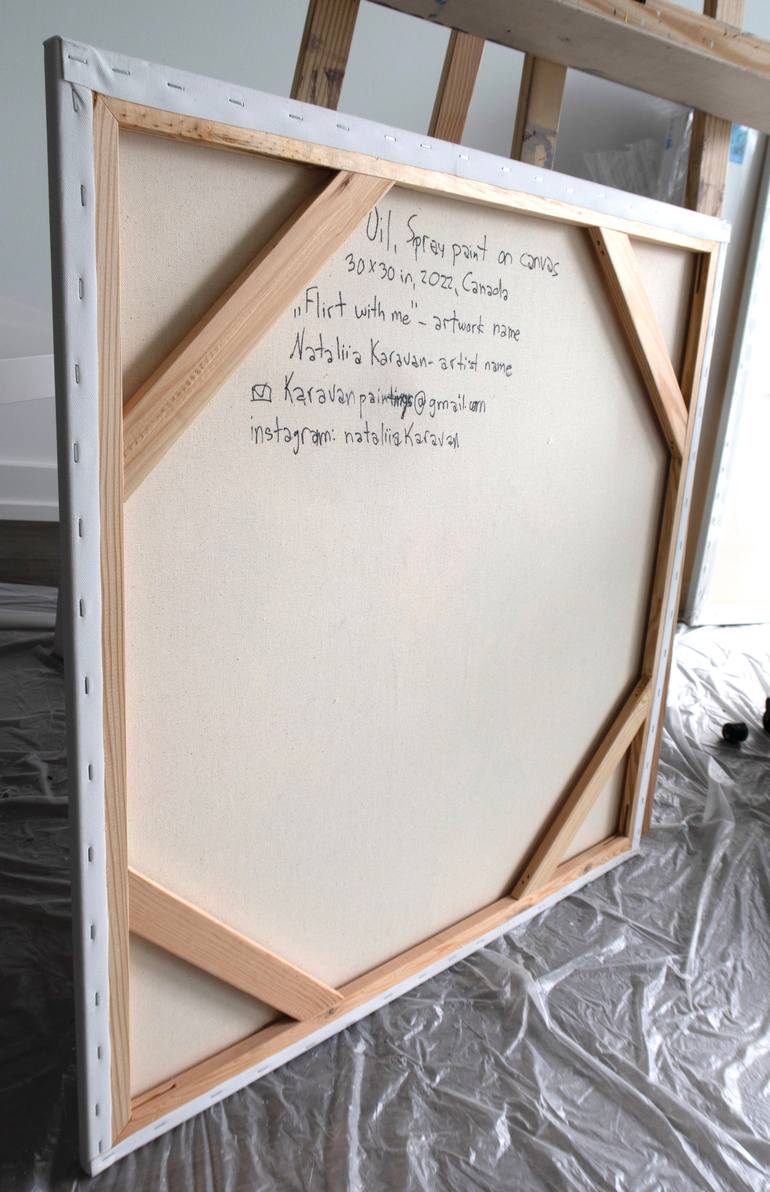 Oil, Spray paint on canvas
30x30 in, 2022, Canada
„Flirt with me" - artwork name
Nataliia Karavan - artist name
Karavanpaintings@gmail.com
instagram: nataliiaKaravan